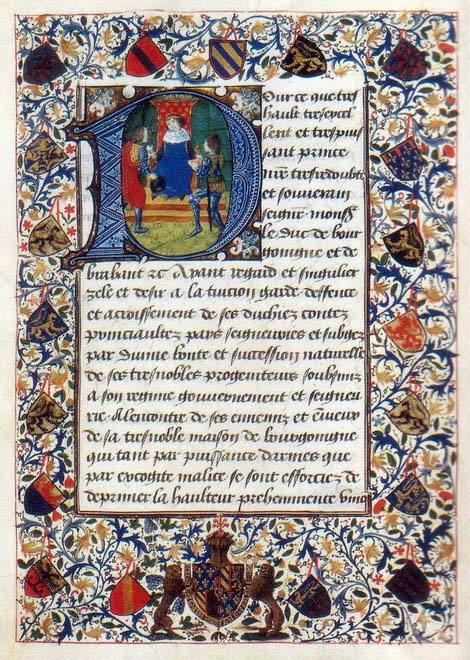 Pour ce que tres
hault tresexcel
lent et trespuis
sant prince
nre tresredoubte
et souverain
seignr mons
le duc de bour
goingne et de
brabant &c Ayant regard et singulier
zele et desir a la tuicion garde deffence
et acroissement de ses duchiez contez
princiaultez pays seigneuries et subgez
par divine bonte et succession naturelle
de ses tresnobles progeniteurs soubzmiz
a son regime gouvernement et seigneu
rie Alencontre de ses ennemiz et
de sa tresnoble maison de bourgoingne
qui tant par puissance darmes que
par excogite malice se sont efforciez de
deprimer la haulteur prehemmence